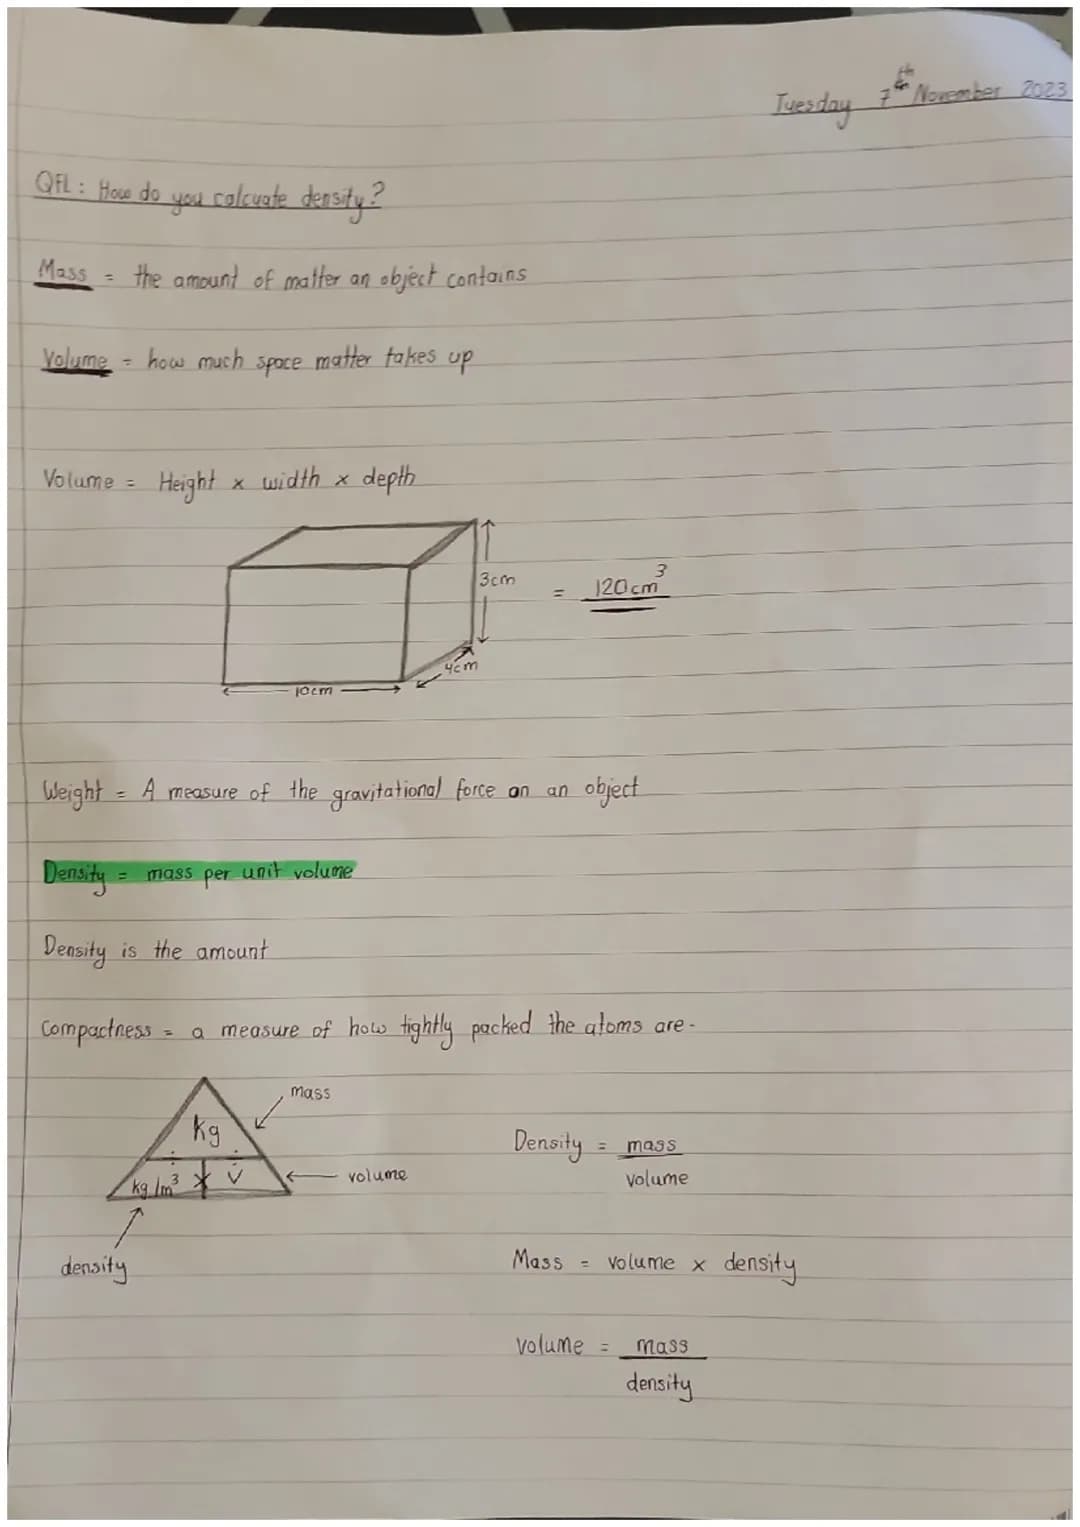 Tuesday 7th November 2023
QFL: How do you calcuate density?
Mass = the amount of matter an object contains
Volume = how much space matter takes up
Volume = Height x width x depth
3cm
= 120cm³
4cm
10cm
Weight = A measure of the gravitational force on an object
Density = mass per unit volume
Density is the amount
Compactness = a measure of how tightly packed the atoms are.
mass
kg
÷ ÷
kg/m³ x v
volume
density
Density = mass
volume
Mass = volume x density
volume = mass
density